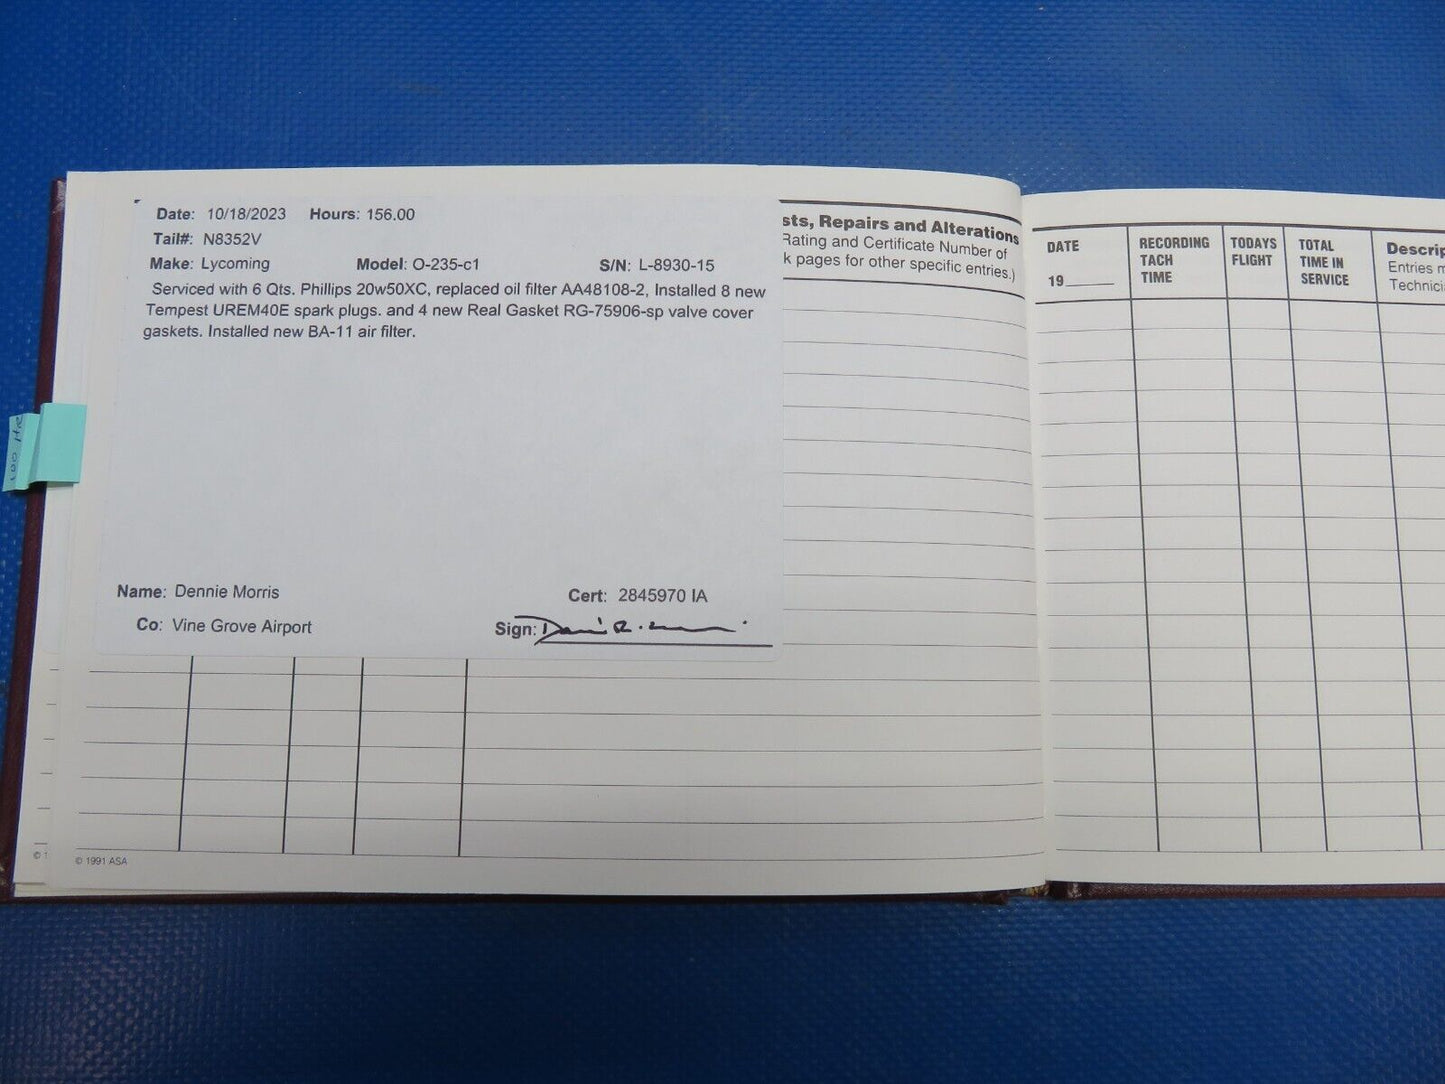 Date: 10/18/2023 Hours: 156.00
Tail#: N8352V
Make: Lycoming Model: O-235-c1 S/N: L-8930-15
Serviced with 6 Qts. Phillips 20w50XC, replaced oil filter AA48108-2, Installed 8 new
Tempest UREM40E spark plugs. and 4 new Real Gasket RG-75906-sp valve cover
gaskets. Installed new BA-11 air filter.
Name: Dennie Morris Cert: 2845970 IA
Co: Vine Grove Airport Sign:
sts, Repairs and Alterations
Rating and Certificate Number of
k pages for other specific entries.)
© 1991 ASA
© 1
DATE
19
RECORDING
TACH
TIME
TODAYS
FLIGHT
TOTAL
TIME IN
SERVICE
Descrip
Entries m
Technici